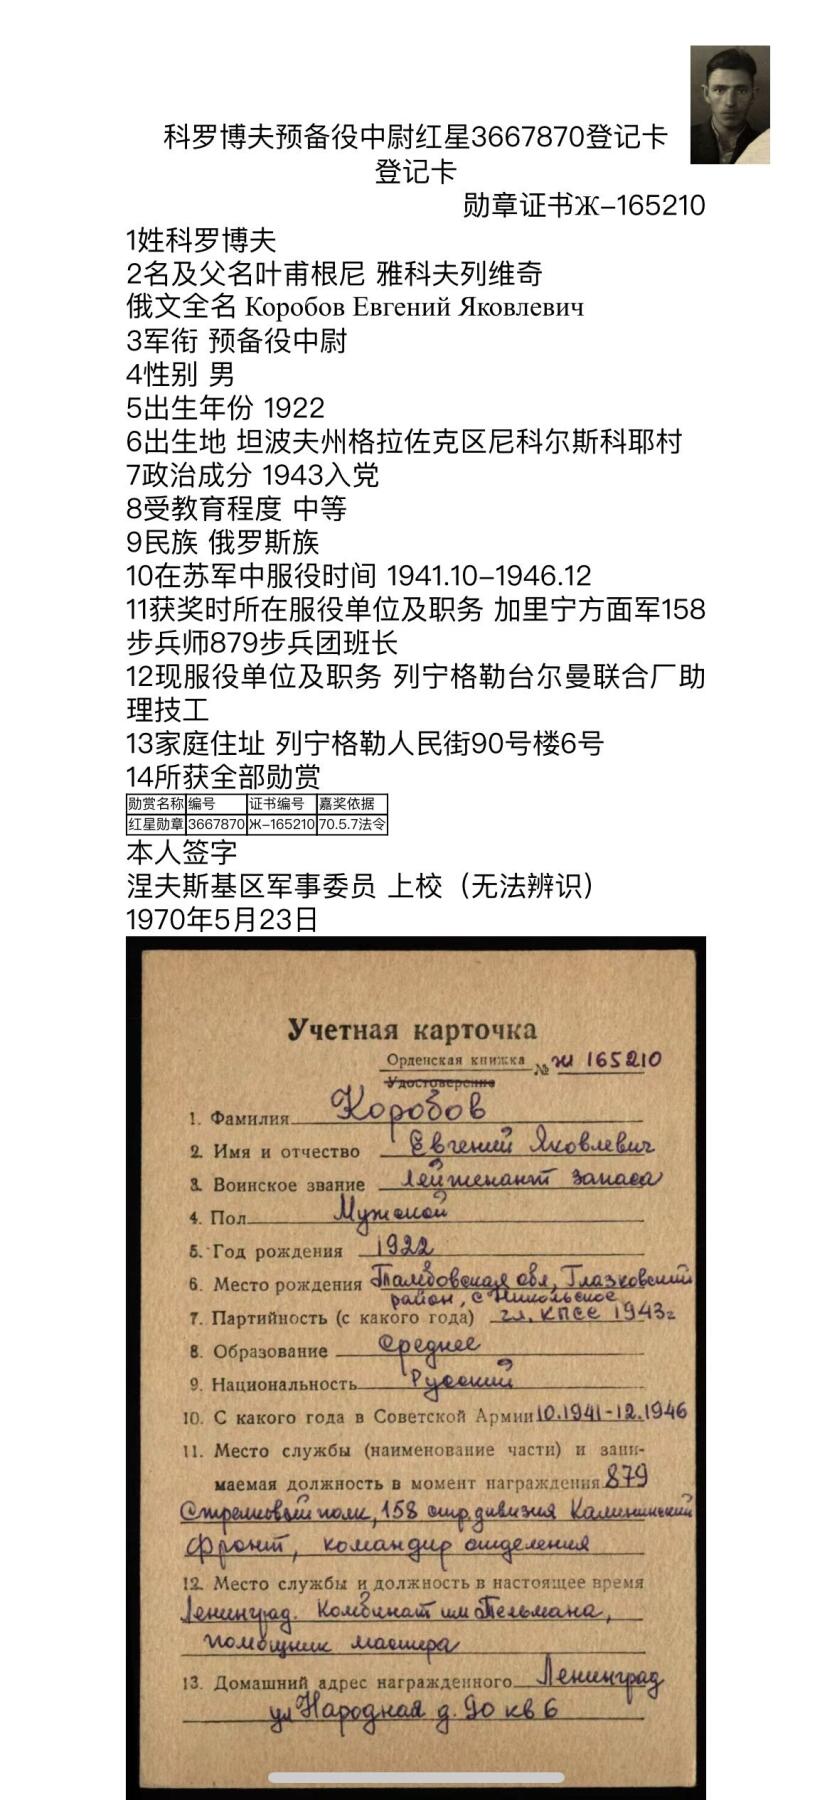 科罗博夫预备役中尉红星3667870登记卡
登记卡
勋章证书Ж-165210
1姓科罗博夫
2名及父名叶甫根尼 雅科夫列维奇
俄文全名 Коробов Евгений Яковлевич
3军衔 预备役中尉
4性别 男
5出生年份 1922
6出生地 坦波夫州格拉佐克区尼科尔斯科耶村
7政治成分 1943入党
8受教育程度 中等
9民族 俄罗斯族
10在苏军中服役时间 1941.10-1946.12
11获奖时所在服役单位及职务 加里宁方面军158
步兵师879步兵团班长
12现服役单位及职务 列宁格勒台尔曼联合厂助
理技工
13家庭住址 列宁格勒人民街90号楼6号
14所获全部勋赏
勋赏名称 编号 证书编号 嘉奖依据
红星勋章 3667870 Ж-165210 70.5.7法令
本人签字
涅夫斯基区军事委员 上校（无法辨识）
1970年5月23日
Учетная карточка
Орденская книжка № Ж 165210
Удостоверение
1. Фамилия Коробов
2. Имя и отчество Евгений Яковлевич
3. Воинское звание Лейтенант запаса
4. Пол Мужской
5. Год рождения 1922
6. Место рождения Тамбовская обл, Глазковский
район, с Никольское
7. Партийность (с какого года) чл. КПСС 1943г
8. Образование Среднее
9. Национальность Русский
10. С какого года в Советской Армии 10.1941-12.1946
11. Место службы (наименование части) и зани-
маемая должность в момент награждения 879
Стрелковый полк, 158 стр. дивизия Калининский
фронт, командир отделения
12. Место службы и должность в настоящее время
Ленинград. Комбинат им Тельмана,
помощник мастера
13. Домашний адрес награжденного Ленинград
ул Народная д. 90 кв 6